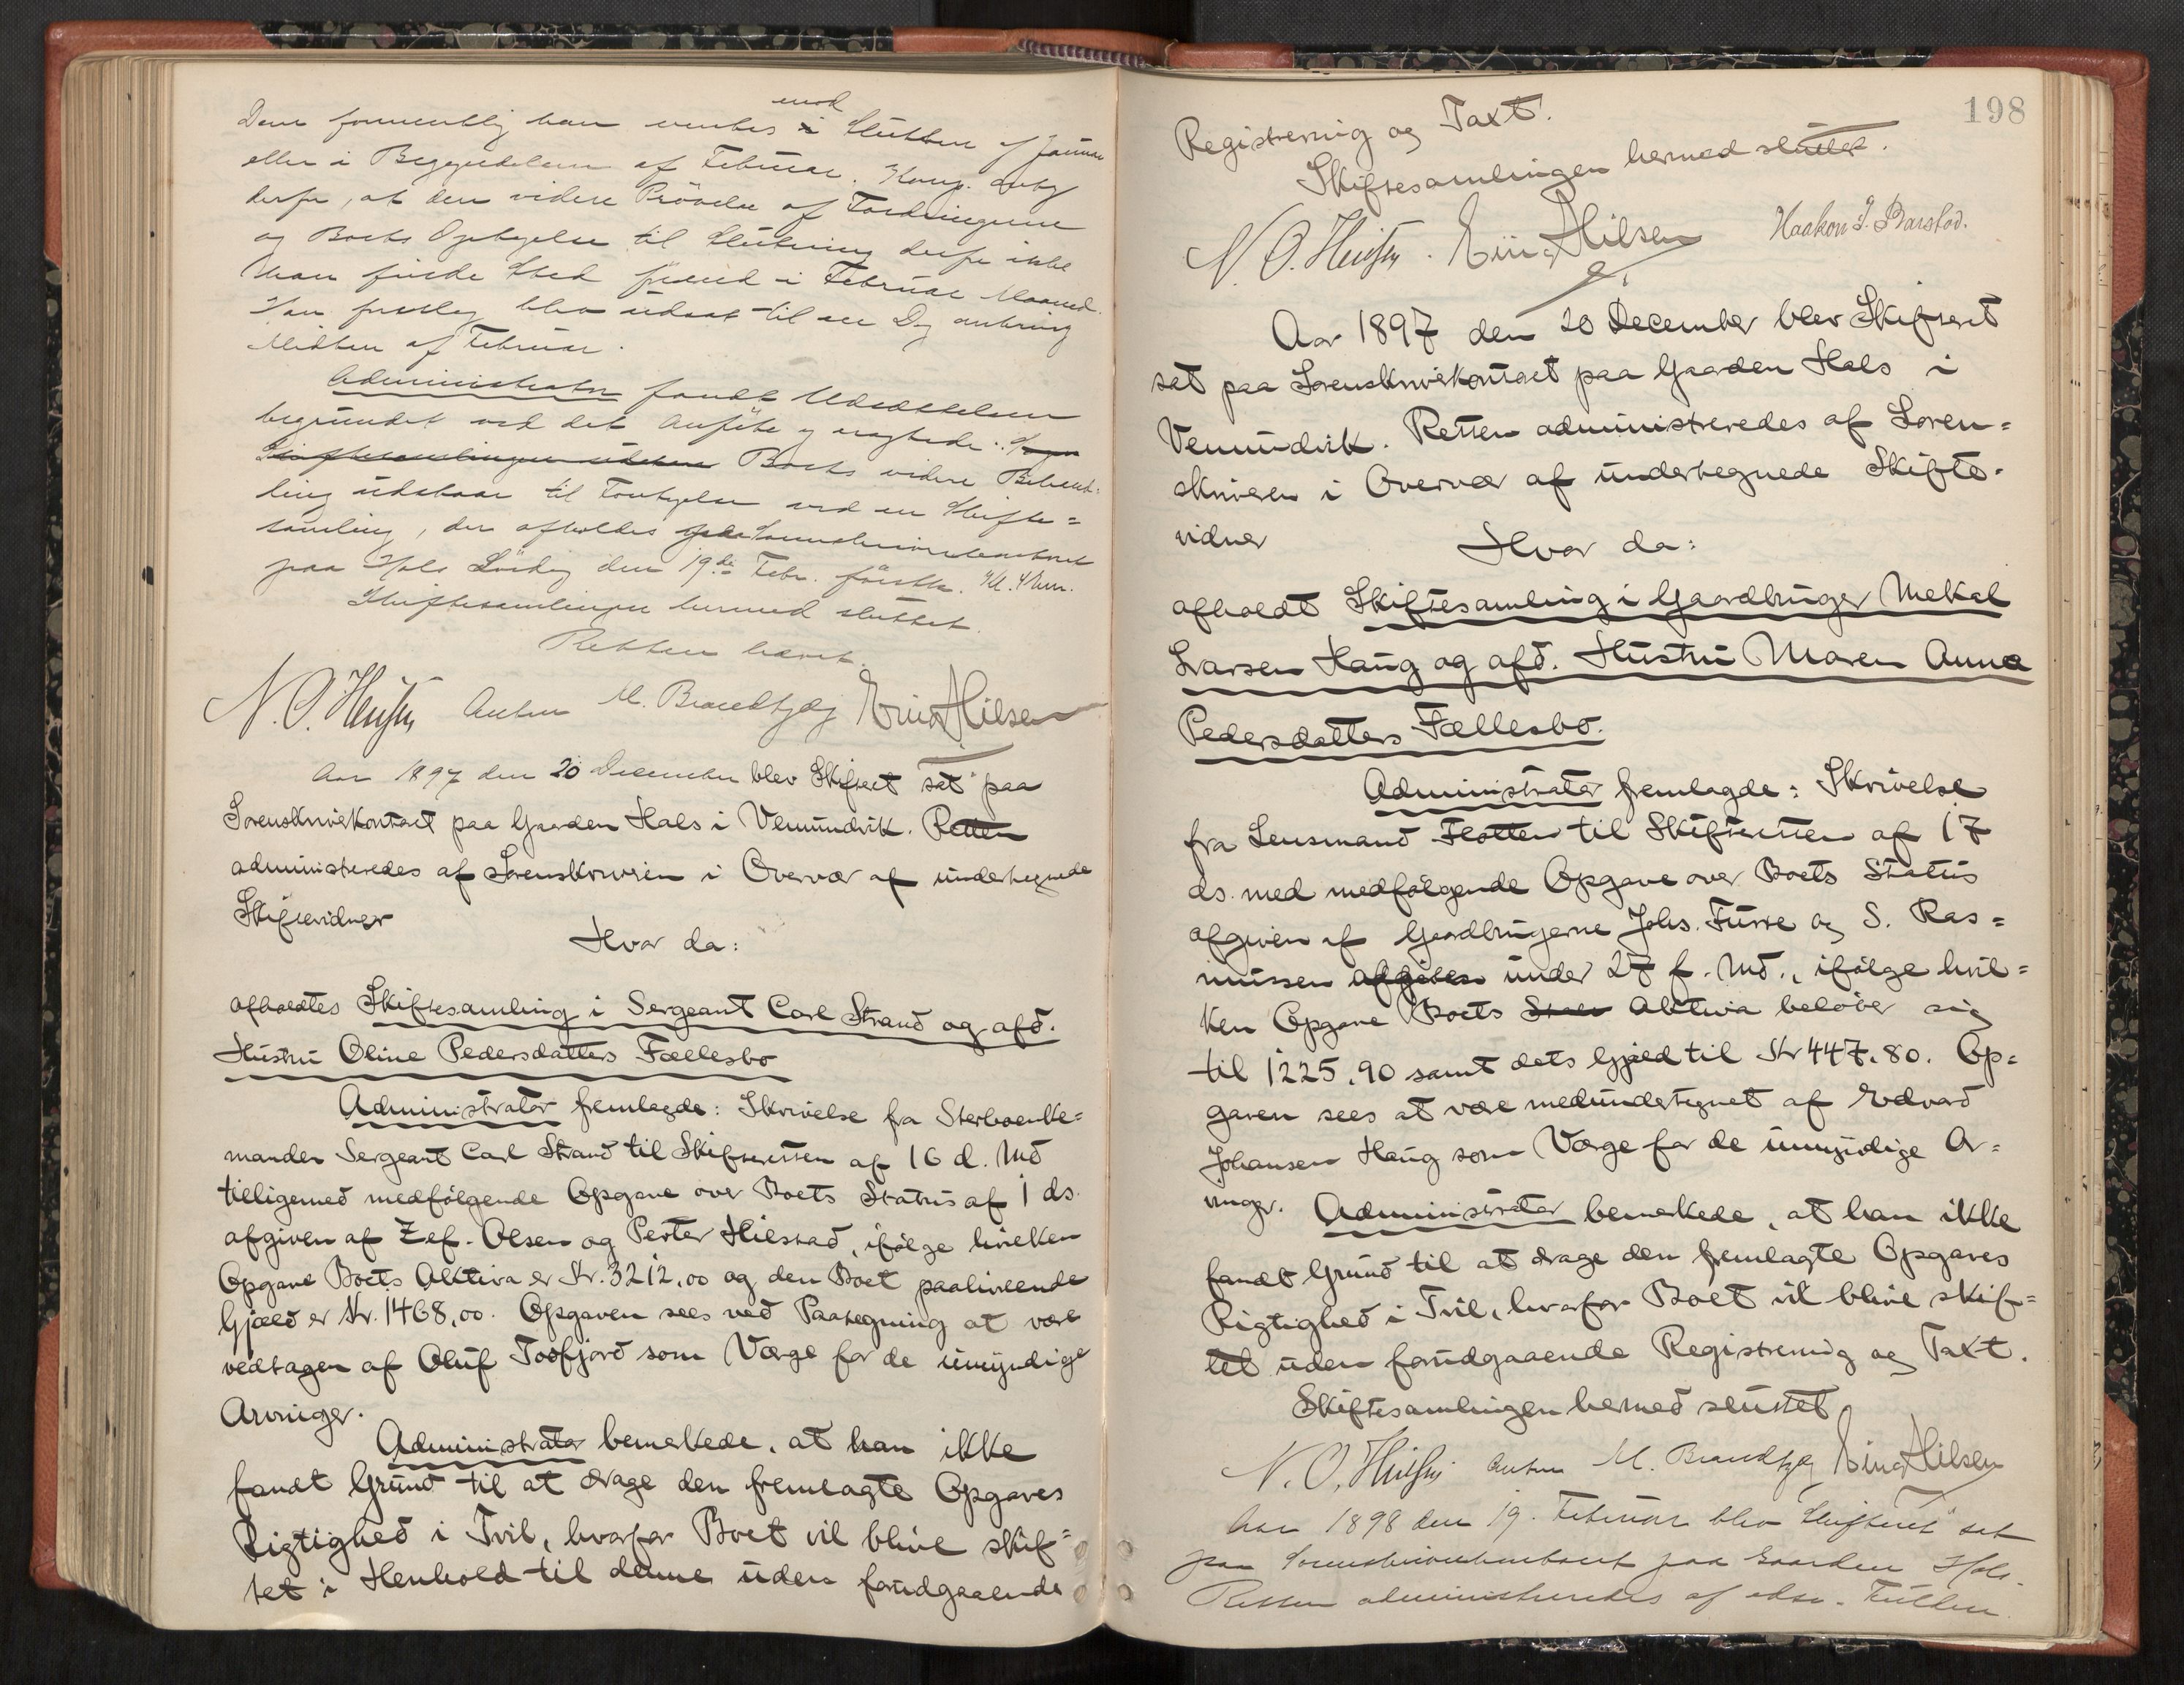 mod
Dom formentlig kan ventes i Slutten af Januar
eller i Begyndelsen af Februar.
derfor, at den videre Prövelse af Fordringerne
og Boets Opbyttelse til Slutning derfor ikke
kan finde Sted förend i Februar Maaned.
blev udsat til en Dag omkring
Midten af Februar.
Administrator fandt Udsættelsen
begrundet ved det Anförte og eragtede:
Skiftesamlingen Boets videre Behand-
ling udstaar til Foretagelse ved en Skifte=
samling, der afholdes paa Sorenskriverkontoret
paa Hals Lördag den 19de Febr. förstk. Kl. 4 Em.
Skiftesamlingen hermed sluttet.
Retten hævet.
N. O. Anton M. Brandtzæg Nilsen
Aar 1897 den 20 December blev Skifteret sat paa
Sorenskriverkontoret paa Gaarden Hals i Vemundvik. Retten
administreredes af Sorenskriveren i Overvær af undertegnede
Skiftevidner
Hvor da:
afholdtes Skiftesamling i Sergeant Carl Strand og afd.
Hustru Oline Pedersdatters Fællesbo
Administrator fremlagde: Skrivelse fra Sterboenke=
manden Sergeant Carl Strand til Skifteretten af 16 d. Md
tilligemed medfölgende Opgave over Boets Status af 1 ds.
afgiven af Zef. Olsen og Peter Hilstad, ifölge hvilken
Opgave Boets Aktiva er Kr. 3212,00 og den Boet paahvilende
Gjæld er Kr. 1468,00. Opgaven sees ved Paategning at være
vedtagen af Oluf Tosfjord som Værge for de umyndige
Arvinger.
Administrator bemerkede, at han ikke
fandt Grund til at drage den fremlagte Opgaves
Rigtighed i Tvil, hvorfor Boet vil blive skif=
tet i Henhold til denne uden forudgaaende
198
Registrering og Taxt.
Skiftesamlingen hermed sluttet.
N. O. Nilsen Haakon J. Barstad.
Aar 1897 den 20 December blev Skifteret
sat paa Sorenskriverkontoret paa Gaarden Hals i
Vemundvik. Retten administreredes af Soren=
skriveren i Overvær af undertegnede Skifte-
vidner
Hvor da:
afholdt Skiftesamling i Gaardbruger Mekal
Larsen Haug og afd. Hustru Maren Anna
Pedersdatters Fællesbo.
Administrator fremlagde: Skrivelse
fra Lensmand Flotten til Skifteretten af 17
ds. med medfölgende Opgave over Boets Status
afgiven af Gaardbrugerne Johs. Furre og S. Ras=
mussen afgiven under 27 f. Md., ifölge hvil=
ken Opgave Boets Aktiva belöber sig
til 1225,90 samt dets Gjæld til Kr 447,80. Op=
gaven sees at være medundertegnet af Edvard
Johansen Haug som Værge for de umyndige Ar=
vinger. Administrator bemerkede, at han ikke
fandt Grund til at drage den fremlagte Opgaves
Rigtighed i Tvil, hvorfor Boet vil blive skif=
tet uden forudgaaende Registrering og Taxt.
Skiftesamlingen hermed sluttet
N. O. Anton M. Brandtzæg Nilsen
Aar 1898 den 19. Februar blev Skifteret sat
paa Sorenskriverkontoret paa Gaarden Hals.
Retten administreredes af edsv. Fuldm.